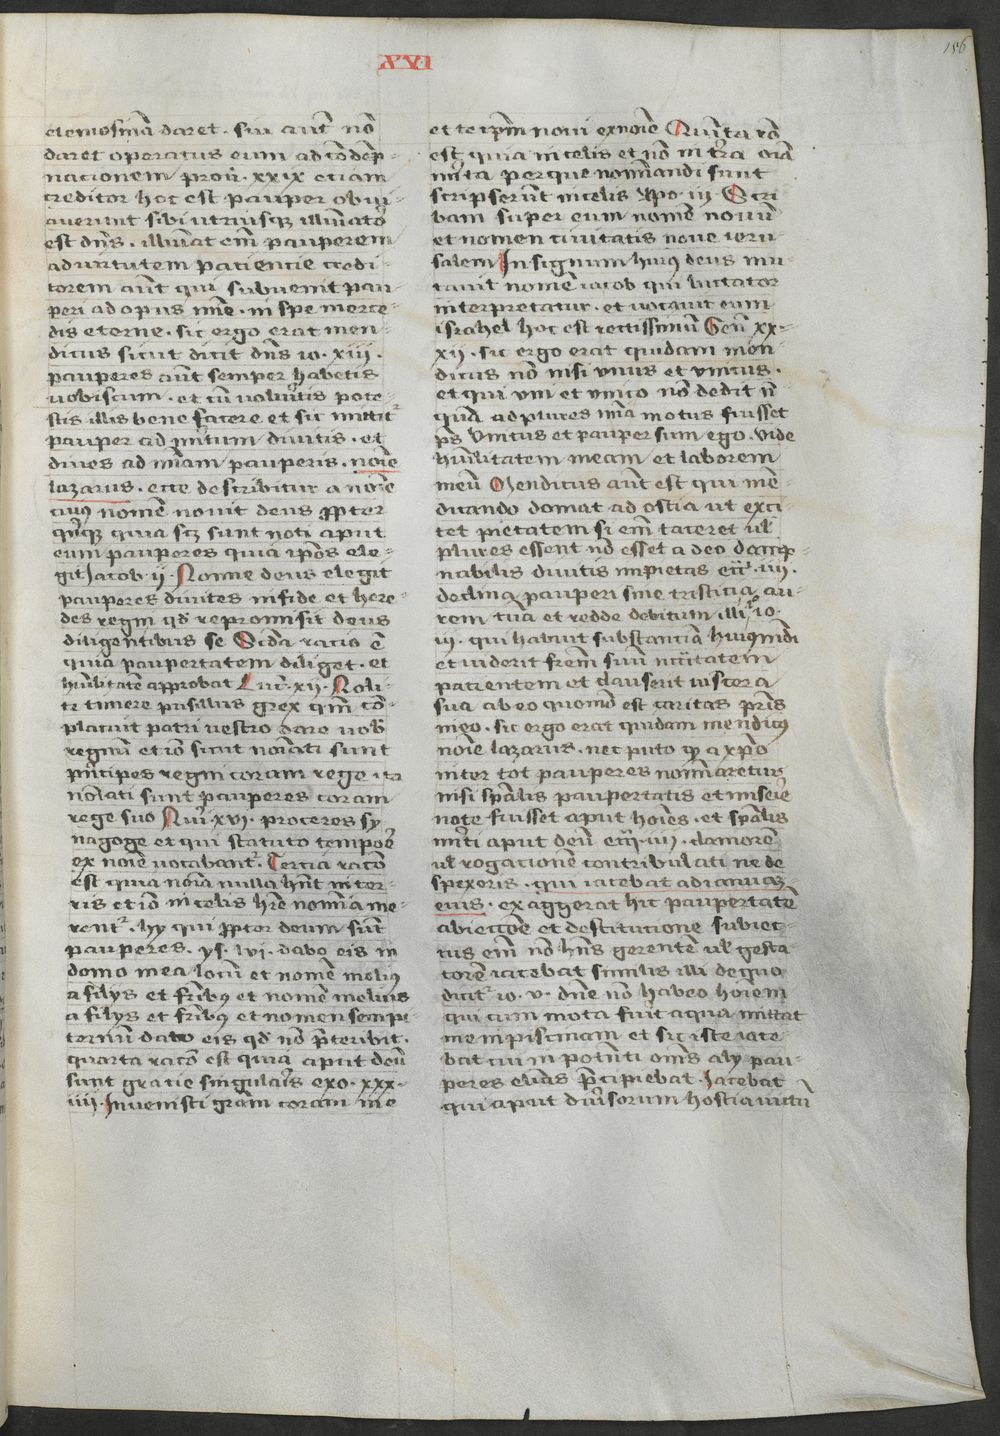 156
XVI
elemosinā daret. sin autē nō
daret operatus eum ad cōdēp-
nationem prou̅. xxix etiam
creditor hoc est pauper obui-
auerunt sibi utriusqz illuīato᷑
est dn̄s. illuīat em̄ pauperem
ad uirtutem patiencie credi-
torem aūt qui subuenit pau-
peri ad opus mīe. in spe merce-
dis eterne. sic ergo erat men-
dicus sicut dicit dn̄s io. xiii.
pauperes aūt semper habetis
uobiscum. et cū uoluītis pote-
stis illis bene facere et sic mittit᷑
pauper ad mītum diuitis. et
diues ad mīam pauperis. noīe
lazarus. ecce describitur a noīe
cuiꝰ nomē nouit deus ꝓpter
quinqz quia scz sunt noti aput
eum pauperes quia ip̄os ele-
git Jacob ii. Nonne deus elegit
pauperes diuites in fide et here-
des regni qd̄ repromisit deus
diligentibus se Scd̄a racio ē
quia paupertatem diliget. et
hūilitatē approbat Luc̄. xii. Noli-
te timere pusillus grex qm̄ cō-
placuit patri uestro dare uob̄
regnū et iō sicut noīati sunt
prīcipes regni coram rege ita
noīati sunt pauperes coram
rege suo Nuī xvi. proceres sy
nagoge et qui statuto tempoē
ex noīe uocabant᷑. Tercia racō
est quia noīa nulla hn̄t in ter-
ris et iō in celis hr̄e nomīa me-
rent᷑. hy qui ꝓpter deum sūt
pauperes. ys. lvi. dabo eis in
domo mea locū et nomē meliꝰ
a filys et fr̄ibꝰ et nomē melius
a filys et fr̄ibꝰ et nomen sempi
ternū dabo eis qd̄ nō p̄teribit.
quarta racō est quia aput deū
sunt gracie singulaīs exo. xxx-
iii. Inuenisti grām coram me
et te ip̄m noui ex noīe Quīta rō
est quia in celis et nō in tr̄a oīa
mīta per que nomīandi sunt
scripserūt in celis Apo. iii. Scri
bam super eum nomē nouū
et nomen ciuitatis noue ieru-
salem In signum huiꝰ deus mu-
tauit nomē iacob qui luctator
interpretatur. et uocauit eum
israhel hoc est rectissimū Gen̄ xx-
xii. sic ergo erat quidam men
dicus nō nisi vnus et vnicus.
et qui vni et vnico nō dedit n̄
quā ad plures mīa motus fuisset
ps̄ Vnicus et pauper sum ego. vide
hūilitatem meam et laborem
meū Mendicus aūt est qui mē-
dicando domat ad ostia ut exci-
tet pietatem si em̄ taceret ul̄
plures essent nō esset a deo damp-
nabilis diuitis impietas eccī. iiii.
declina pauperi sine tristicia au-
rem tuā et redde debitum illi. io.
iii. qui habuit substanciā huiꝰ mūdi
et uiderit fr̄em suū nc̄citatem
pacientem et clauserit uiscera
sua ab eo quomō est caritas pr̄is
meo. sic ergo erat quidam mendicꝰ
noīe lazarus. nec puto ꝙ a xp̄o
inter tot pauperes nomīaretur
nisi sp̄alis paupertatis et miseīe
note fuisset aput hoīes. et sp̄alis
mīti aput deū eccī. iiii. clamorē
ul̄ rogacionē contribulati ne de
spexeris. qui iacebat ad ianuaz
eius. exaggerat hic paupertatē
abiectiōē et destitucionē subiec-
tus em̄ nō hn̄s gerentē ul̄ gesta
torē iacebat similis illi de quo
dicit᷑ io. v. dn̄e nō habeo hoīem
qui cum mota fūit aqua mittat
me in piscinam et sic iste iace
bat cui in potn̄ti om̄s aly pau-
peres elīas p̄cipiebat. Jacebat
qui aput diūsorum hostia uictū